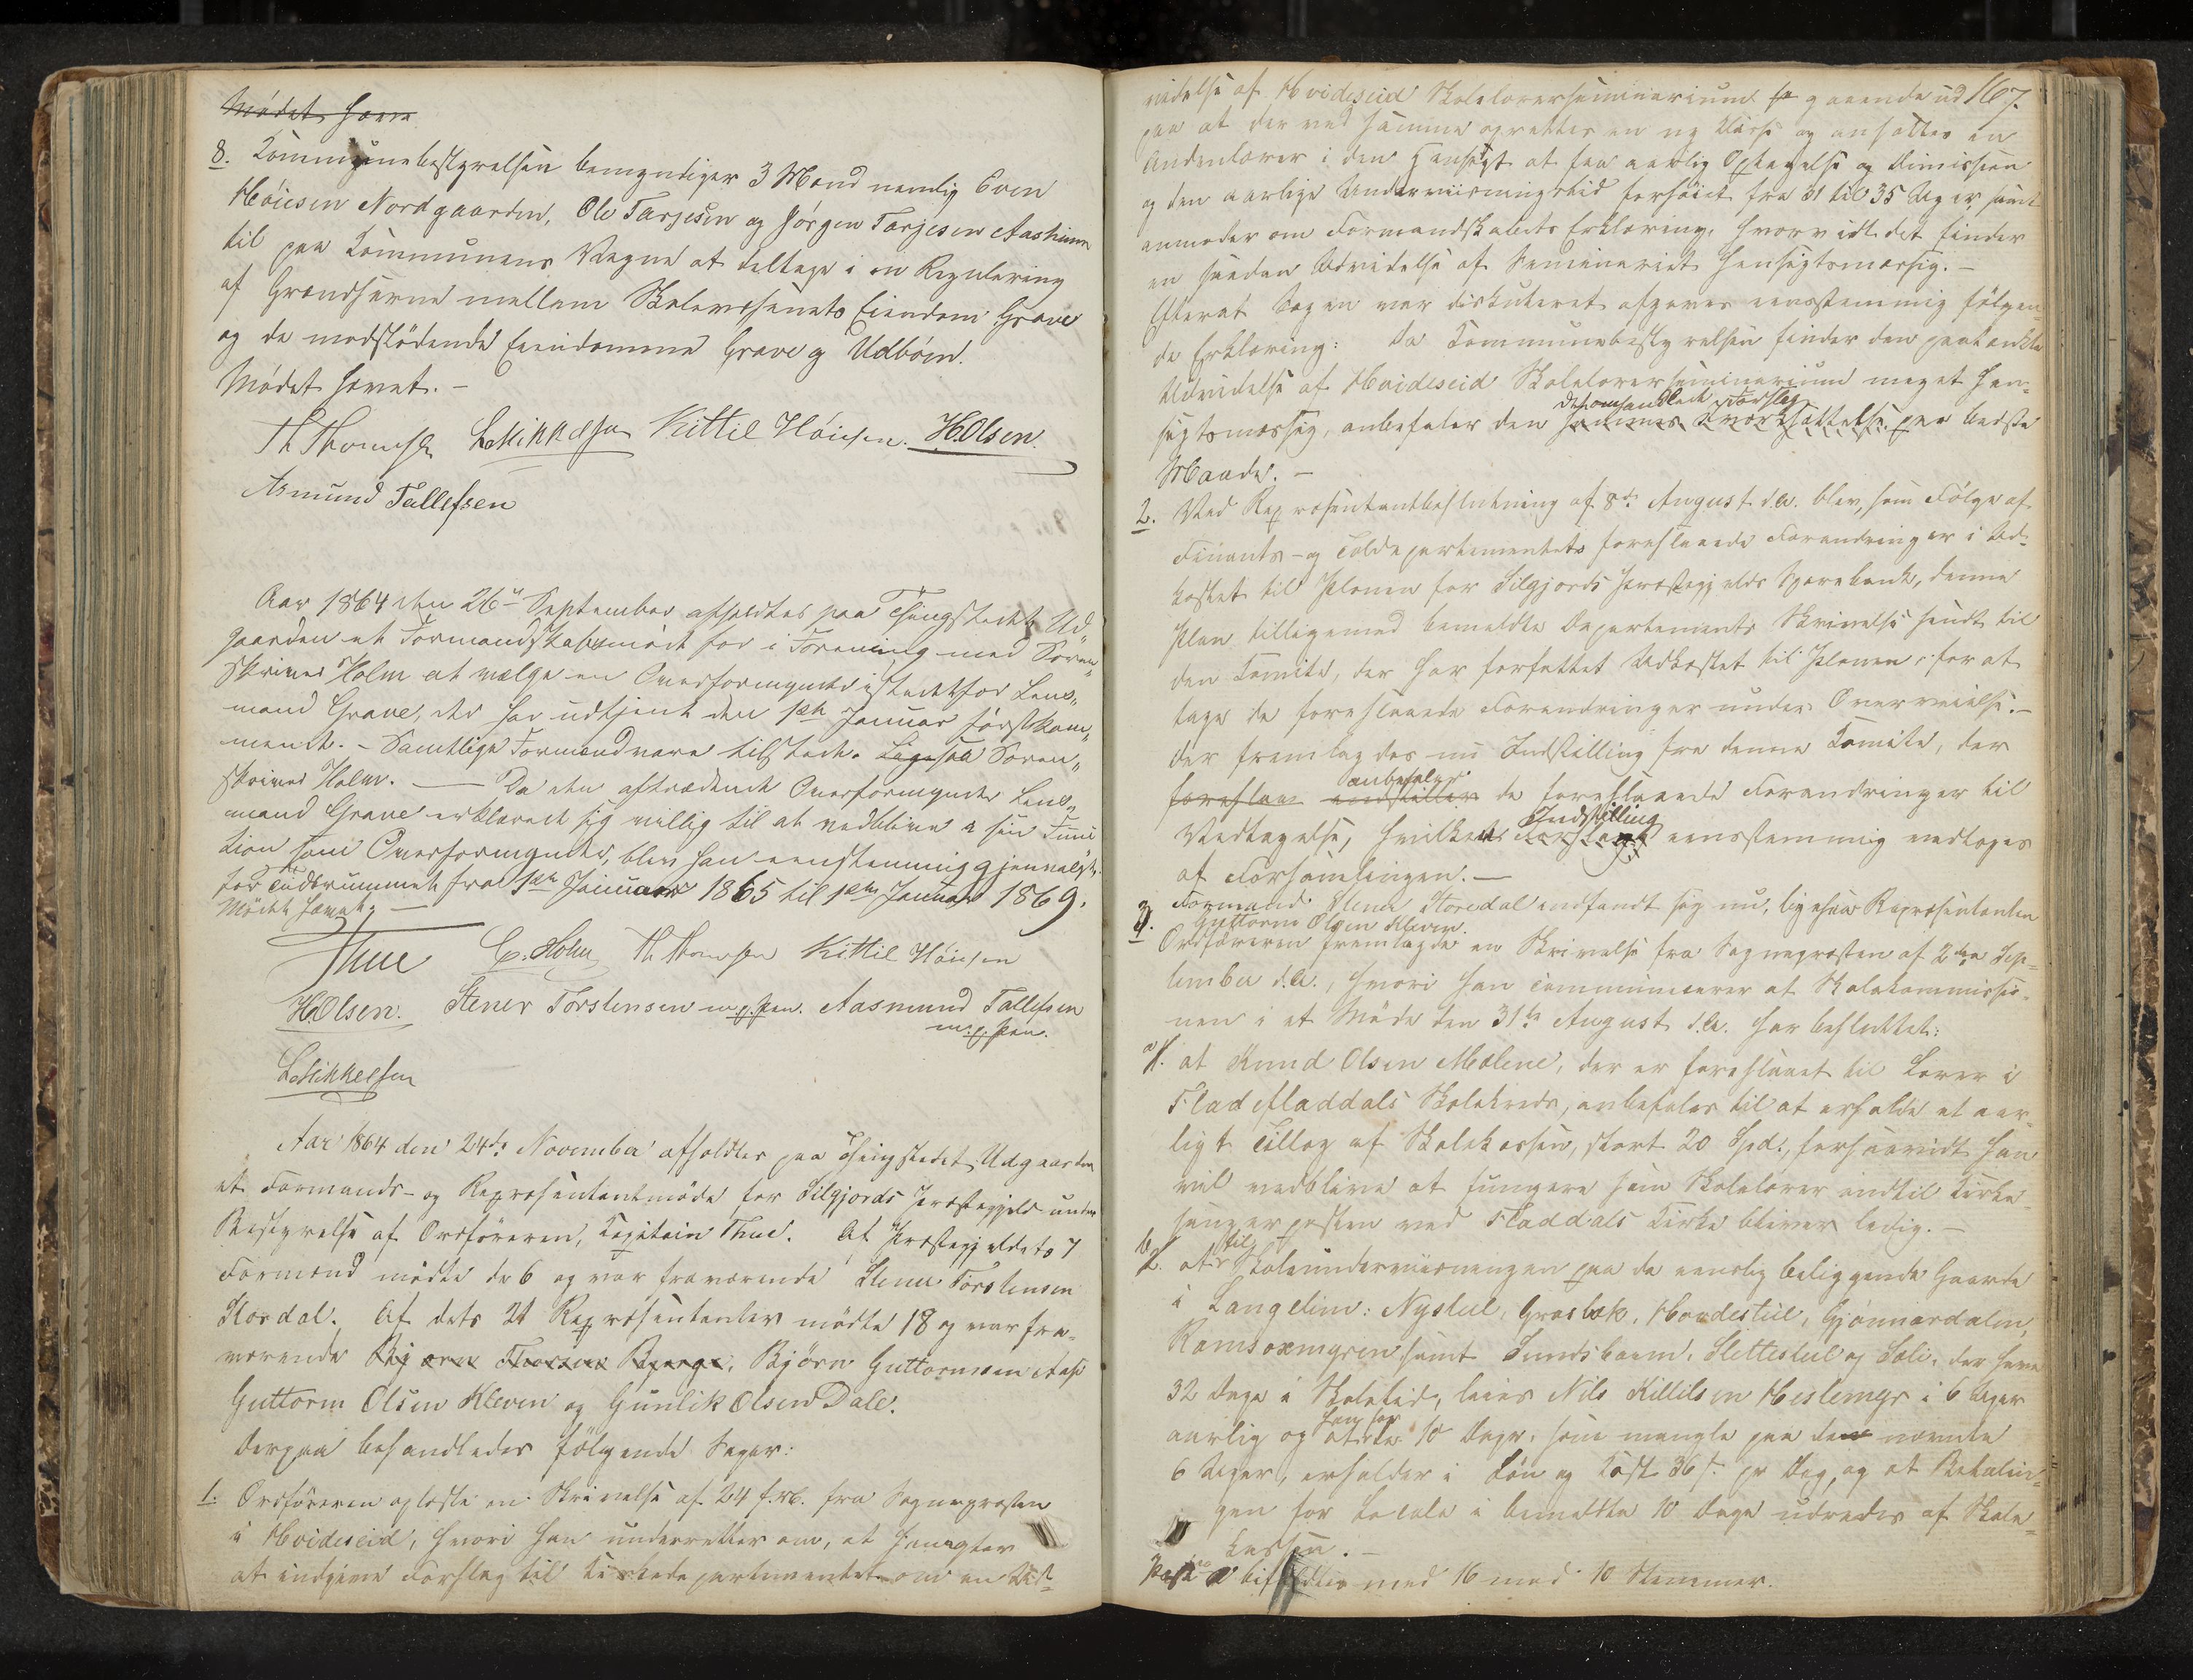 Mødet hæve
8. Kommunebestyrelsen bemyndiger 3 Mænd nemlig Even
Høiesen Nordgaarden, Ole Tarjesen og Jørgen Tarjesen Aasheim
til paa Kommunens Vegne at deltage i en Regulering
af Grændserne mellem Skolevæsenets Eiendom Grave
og de modstødende Eiendomme Grave og Udbøen.
Mødet hævet. –
Th Thomesen L. Mikkelsen Kittil Høiesen. H. Olsen.
Asmund Tallefsen
Aar 1864 den 26de September afholdtes paa Thingstedet Ud„
gaarden et Formandskabsmøde for i Forening med Soren„
skriver Holm at vælge en Overformynder istedetfor Lens„
mand Grave, der har udtjent den 1ste Januar førstkom„
mende. – Samtlige Formænd vare tilstede. Ligesaa Soren„
skriver Holm. — Da den aftrædende Overformynder Lens„
mand Grave erklærede sig villig til at vedblive i sin Funk
tion som Overformynder, blev han eenstemmig gjenvalgt
for Tidsrummet fra 1ste Januar 1865 til 1ste Januar 1869.
Mødet hævet. —
Thue C. Holm Th Thomesen Kittil Høiesen
H. Olsen. Stener Torstensen m. p. Pen. Aasmund Tallefsen
m. p. Pen.
L. Mikkelsen
Aar 1864 den 24de November afholdtes paa Thingstedet Udgaarden
et Formands- og Repræsentantmøde for Silgjords Præstegjeld under
Bestyrelse af Ordføreren, Capitain Thue. Af Præstegjeldets 7
Formænd mødte de 6 og var fraværende Stener Torstensen
Stordal. Af dets 21 Repræsentanter mødte 18 og var fra-
værende Bjørn Guttormsen Aase
Guttorm Olsen Kleven og Gunlik Olsen Dale.
Derpaa behandledes følgende Sager:
1. Ordføreren oplæste en Skrivelse af 24 f. M. fra Sognepræsten
i Hvideseid, hvori han underretter om, at han agter
at indgive Forslag til Kirkedepartementet om en Ud-
videlse af Hvideseid Skolelærerseminarium gaaende ud 167.
paa at der ved samme oprettes en ny Klasse og ansættes en
Andenlærer i den Hensigt at faa aarlig Optagelse og Dimission
og den aarlige Underviisningstid forhøiet fra 31 til 35 Uger, samt
anmoder om Formandskabets Erklæring, hvorvidt det finder
en saadan Udvidelse af Seminariet hensigtsmæssig. –
Efterat Sagen var diskuteret afgaves eenstemmig følgen-
de Erklæring: Da Kommunebestyrelsen finder den paatænkte
Udvidelse af Hvideseid Skolelærerseminarium meget hen-
det omhandlede Forslag
sigtsmæssig, anbefaler den sammes Iværksættelse paa bedste
Maade. –
2. Ved Repræsentantbeslutning af 8de August d. A. blev, som Følge af
Finants- og Tolddepartementets foreslaaede Forandringer i Ud-
kastet til Planen for Silgjords Præstegjelds Sparebank, denne
Plan tilligemed bemeldte Departements Skrivelse sendt til
den Komite, der har forfattet Udkastet til Planen, for at
tage de foreslaaede Forandringer under Overveielse. –
Der fremlagdes nu Indstilling fra denne Komite, der
anbefaler
foreslaar indstiller de foreslaaede Forandringer til
Indstilling
Vedtagelse, hvilken Forslag eensstemmig vedtoges
af Forsamlingen. —
Formand Stener Storedal indfandt sig nu, ligesaa Repræsentanten
Guttorm Olsen Kleven.
3. Ordføreren fremlagde en Skrivelse fra Sognepræsten af 2den Sep-
tember d. A., hvori han communicerer at Skolekommissio-
nen i et Møde den 31te August d. A. har besluttet:
a. at Knud Olsen Mælene, der er foreslaaet til Lærer i
Fladefladdals Skolekreds, anbefales til at erholde et aar-
ligt Tillæg af Skolekassen, stort 20 Spd., forsaavidt han
vil vedblive at fungere som Skolelærer indtil Kirke-
sangerposten ved Fladdals Kirke bliver ledig. –
til
b. at Skoleunderviisningen paa de eenslig beliggende Gaarde
i Langelim: Nystul, Grasbæk, Hovdestul, Gjønnardalen,
Ramsoxmyren samt Sundsbarm, Slettestul og Soli, der have
32 Dage i Skoletid, leies Nils Kittilsen Heslemyr i 6 Uger
han for
aarlig og at de 10 Dage, som mangle paa de nævnte
6 Uger, erholder i Løn og Kost 36 s. pr Dag, og at Betalin-
gen for Locale i bemeldte 10 Dage udredes af Skole-
kassen. –
Post a bifaldtes med 16 mod 10 Stemmer.